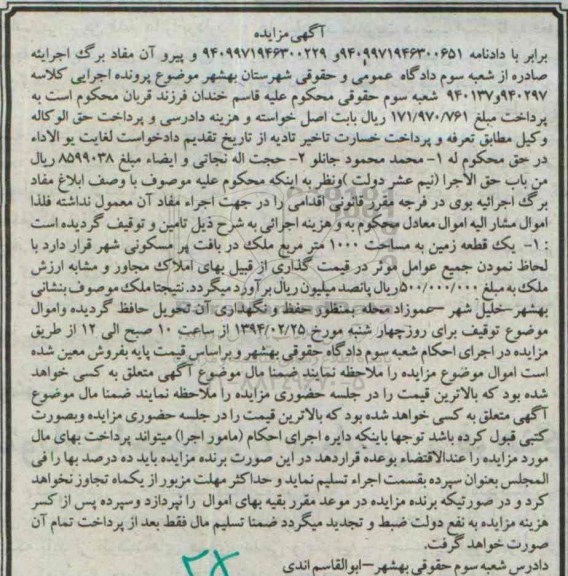 آگهی مزایده
برابر با دادنامه ۹۴۰۹۹۷۱۹۴۶۳۰۰۶۵۱و ۹۴۰۹۹۷۱۹۴۶۳۰۰۲۲۹ و پیرو آن مفاد برگ اجرائیه
صادره از شعبه سوم دادگاه عمومی و حقوقی شهرستان بهشهر موضوع پرونده اجرایی کلاسه
۹۴۰۲۹۷و۹۴۰۱۳۷ شعبه سوم حقوقی محکوم علیه قاسم خندان فرزند قربان محکوم است به
پرداخت مبلغ ۱۷۱/۹۷۰/۷۶۱ ریال بابت اصل خواسته و هزینه دادرسی و پرداخت حق الوکاله
وکیل مطابق تعرفه و پرداخت خسارت تاخیر تادیه از تاریخ تقدیم دادخواست لغایت یو الاداء
در حق محکوم له ۱- محمد محمود جانلو ۲- حجت اله نجاتی و ایضاء مبلغ ۸۵۹۹۰۳۸ ریال
من باب حق الاجرا (نیم عشر دولت )ونظر به اینکه محکوم علیه موصوف با وصف ابلاغ مفاد
برگ اجرائیه بوی در فرجه مقرر قانونی اقدامی را در جهت اجراء مفاد آن معمول نداشته فلذا
اموال مشار الیه اموال معادل محکوم به و هزینه اجرائی به شرح ذیل تامین و توقیف گردیده است
: ۱- یک قطعه زمین به مساحت ۱۰۰۰ متر مربع ملک در بافت پر مسکونی شهر قرار دارد با
لحاظ نمودن جمیع عوامل موثر در قیمت گذاری از قبیل بهای املاک مجاور و مشابه ارزش
ملک به مبلغ ۵۰۰/۰۰۰/۰۰۰ریال پانصد میلیون ریال برآورد میگردد.نتیجتا ملک موصوف بنشانی
بهشهر –خلیل شهر –عموزاد محله بمنظور حفظ و نگهداری آن تحویل حافظ گردیده واموال
موضوع توقیف برای روزچهار شنبه مورخ ۱۳۹۴/۰۲/۲۵ از ساعت ۱۰ صبح الی ۱۲ از طریق
مزایده در اجرای احکام شعبه سوم دادگاه حقوقی بهشهر و براساس قیمت پایه بفروش معین شده
است اموال موضوع مزایده را ملاحظه نمایند ضمنا مال موضوع آگهی متعلق به کسی خواهد
شده بود که بالاترین قیمت را در جلسه حضوری مزایده را ملاحظه نمایند ضمنا مال موضوع
آگهی متعلق به کسی خواهد شده بود که بالاترین قیمت را در جلسه حضوری مزایده وبصورت
کتبی قبول کرده باشد توجها باینکه دایره اجرای احکام (مامور اجرا) میتواند پرداخت بهای مال
مورد مزایده را عندالاقتضاء بوعده قراردهد در این صورت برنده مزایده باید ده درصد بها را فی
المجلس بعنوان سپرده بقسمت اجراء تسلیم نماید و حداکثر مهلت مزبور از یکماه تجاوز نخواهد
کرد و در صورتیکه برنده مزایده در موعد مقرر بقیه بهای اموال را نپردازد وسپرده پس از کسر
هزینه مزایده به نفع دولت ضبط و تجدید میگردد ضمنا تسلیم مال فقط بعد از پرداخت تمام آن
صورت خواهد گرفت.
دادرس شعبه سوم حقوقی بهشهر –ابوالقاسم اندی